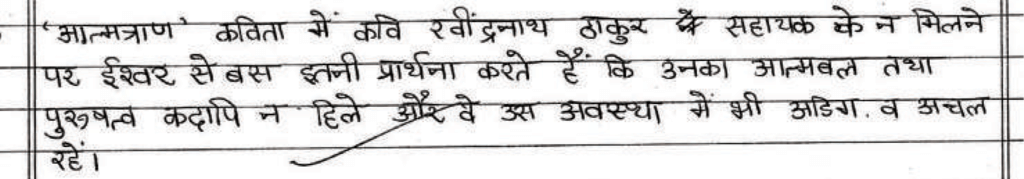 'आत्मत्राण' कविता में कवि रवींद्रनाथ ठाकुर सहायक के न मिलने
पर ईश्वर से बस इतनी प्रार्थना करते हैं कि उनका आत्मबल तथा
पुरुषत्व कदापि न हिले और वे उस अवस्था में भी अडिग. व अचल
रहें।